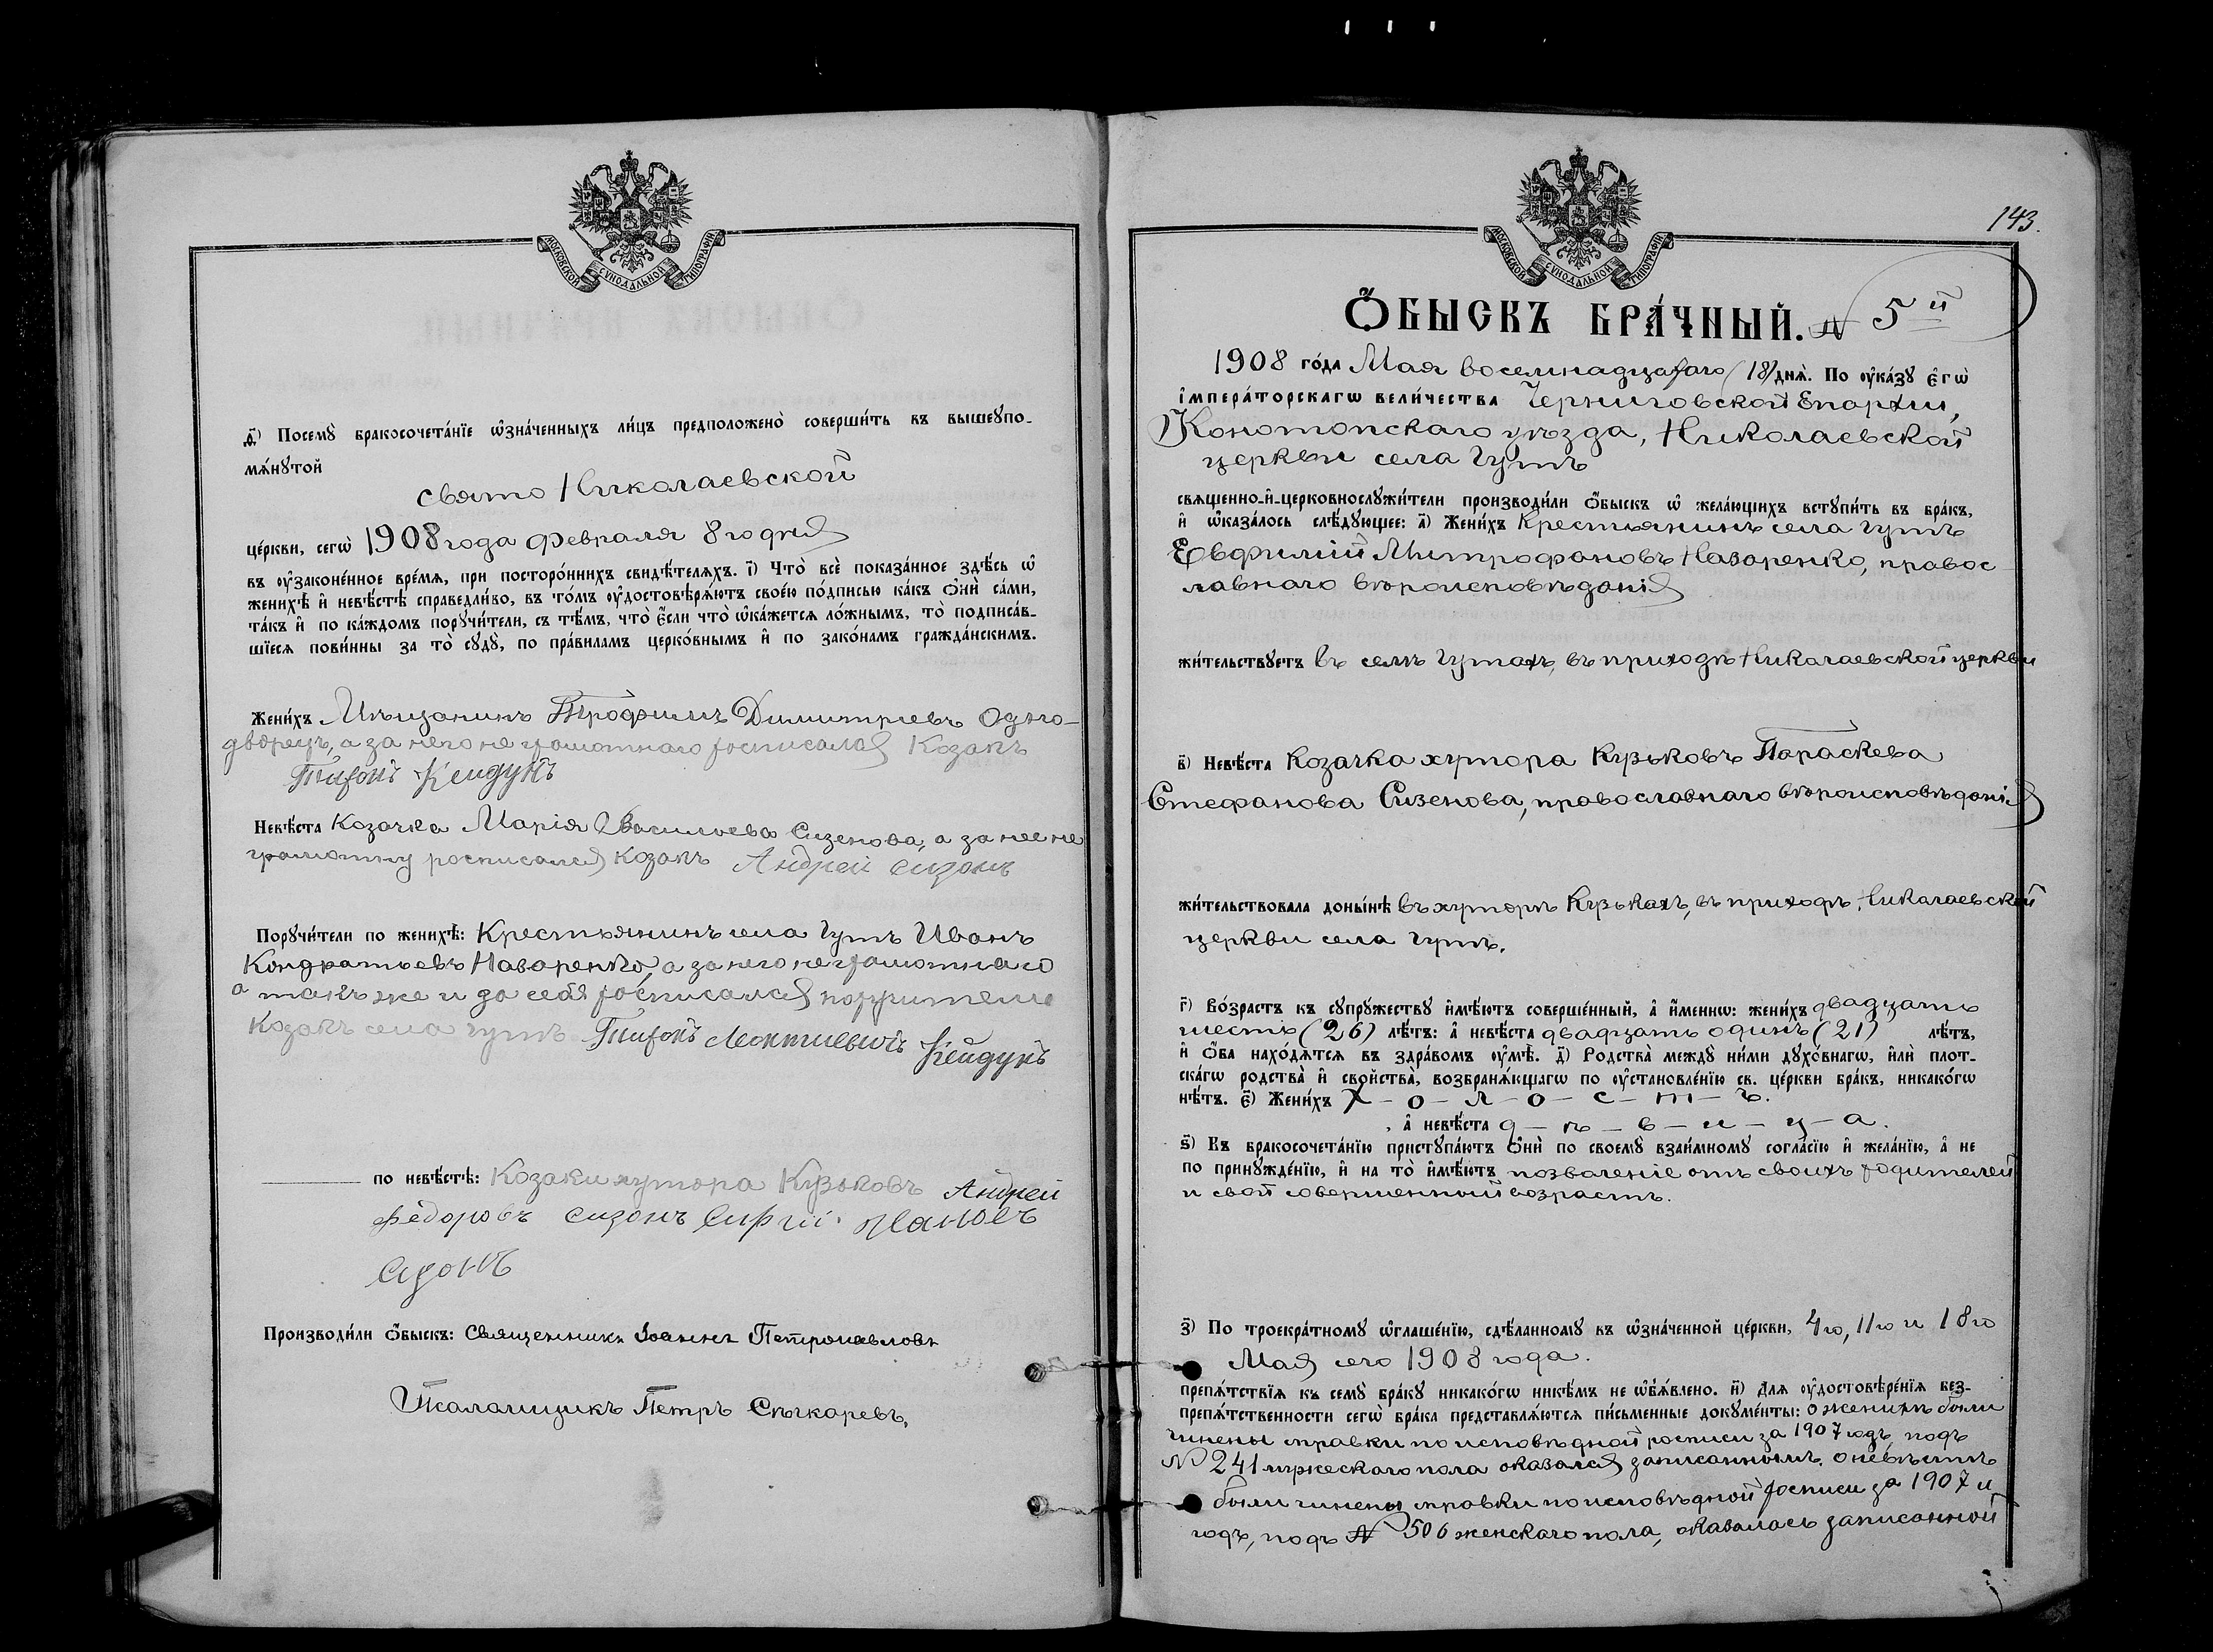 МОСКОВСКОЙ СУНОДАЛЬНОЙ ТИПОГРАФІИ
д҃і) Посемꙋ̀ бракосочета́нїе ѡ҆зна́ченныхъ ли́цъ предположено̀ соверши́ть въ вышеꙋпо-
мѧ́нꙋтой
свято Николаевской
це́ркви, сегѡ̀ 1908 года Февраля 8го дня
въ ᲂу҆законе́нное вре́мѧ, при посторо́ннихъ свидѣ́телѧхъ. і҃) Что̀ всѐ показа́нное здѣ́сь ѡ҆
женихѣ̀ и҆ невѣ́стѣ справедли́во, въ то́мъ ᲂу҆достовѣрѧ́ютъ свое́ю по́дписью ка́къ ѻ҆нѝ са́ми,
та́къ и҆ по ка́ждомъ порꙋчи́тели, съ тѣ́мъ, что̀ є҆́сли что̀ ѡ҆ка́жетсѧ ло́жнымъ, то̀ подписа́в-
шїесѧ пови́нны за то̀ сꙋдꙋ̀, по пра́виламъ церко́внымъ и҆ по зако́намъ гражда́нскимъ.
Жени́хъ Мѣщанинъ Трофимъ Димитріевъ Одно-
дворецъ, а за него не грамотнаго росписался Козакъ
Тиѳонъ Кейдунъ
Невѣ́ста Козачка Марія Васильева Сизенова, а за нее не
грамотну росписался Козакъ Андрей Сизонъ
Порꙋчи́тели по женихѣ̀: Крестьянинъ села Гутъ Иванъ
Кондратьевъ Назаренко, а за него не грамотнаго
а такъ же и за себя росписался поручитель
Козакъ села Гутъ Тиѳонъ Леонтиевичъ Кейдунъ
по невѣ́стѣ: Козаки хутора Кузьковъ Андрей
Федоровъ Сизонъ Сиргіи Ивановъ
Сизонъ
Производи́ли ѻ҆́быскъ: Священникъ Іоаннъ Петропавловъ
Псаломщикъ Петръ Сѣчкаревъ.
143.
МОСКОВСКОЙ СУНОДАЛЬНОЙ ТИПОГРАФІИ
Ѻ҆́БЫСКЪ БРА́ЧНЫЙ. № 5й
1908 го́да Мая восемнадцатаго (18) днѧ̀. По ᲂу҆ка́зꙋ є҆гѡ̀
і҆мпера́торскагѡ вели́чества Черниговской Епархии,
Конотопскаго уѣзда, Николаевской
церкви села Гутъ
свѧщенно-и҆-церковнослꙋжи́тели производи́ли ѻ҆́быскъ ѡ҆ жела́ющихъ встꙋпи́ть въ бра́къ,
и҆ ѡ҆каза́лось слѣ́дꙋющее: а҃) Жени́хъ Крестьянинъ села Гутъ
Евфимій Митрофановъ Назаренко, правос-
лавнаго вѣроисповѣданія
жи́тельствꙋетъ въ селѣ Гутахъ, въ приходѣ Николаевской церкви
в҃) Невѣ́ста Козачка хутора Кузьковъ Параскева
Стефанова Сизенова, православнаго вѣроисповѣданія
жи́тельствовала доны́нѣ въ хуторѣ Кузькахъ, въ приходѣ Николаевской
церкви села Гутъ.
г҃) Во́зрастъ къ сꙋпрꙋ́жествꙋ и҆мѣ́ютъ соверше́нный, а҆ и҆́менно: жени́хъ двадцать
шесть (26) лѣ́тъ: а҆ невѣ́ста двадцать одинъ (21) лѣ́тъ,
и҆ ѻ҆́ба нахо́дѧтсѧ въ здра́вомъ ᲂу҆мѣ̀. д҃) Родства̀ междꙋ̀ ни́ми дꙋхо́внагѡ, и҆лѝ плот-
ска́гѡ родства̀ и҆ сво́йства̀, возбранѧ́ющагѡ по ᲂу҆становле́нїю св. це́ркви бра́къ, никако́гѡ
нѣ́тъ. є҃) Жени́хъ Х–о–л–о–с–т–ъ.
, а҆ невѣ́ста д–ѣ–в–и–ц–а.
ѕ҃) Къ бракосочета́нїю пристꙋпа́ютъ ѻ҆нѝ по своемꙋ̀ взаи́мномꙋ согла́сїю и҆ жела́нїю, а҆ не
по принꙋжде́нїю, и҆ на то̀ и҆мѣ́ютъ позволеніе отъ своихъ родителей
и свой совершенный возрастъ.
з҃) По троекра́тномꙋ ѡ҆глаше́нїю, сдѣ́ланномꙋ въ ѡ҆зна́ченной це́ркви, 4го, 11го и 18го
Мая сего 1908 года.
препѧ́тствїѧ къ семꙋ̀ бра́кꙋ никако́гѡ никѣ́мъ не ѡ҆б̾ѧ́влено. и҃) Длѧ ᲂу҆достовѣре́нїѧ без-
препѧ́тственности сегѡ̀ бра́ка представлѧ́ютсѧ пи́сьменные докꙋме́нты: о женихѣ были
чинены справки по исповѣдной росписи за 1907 годъ, подъ
№ 241 мужескаго пола оказался записаннымъ, о невѣстѣ
были чинены справки по исповѣдной росписи за 1907 й
годъ, подъ № 506 женскаго пола, оказалась записанной